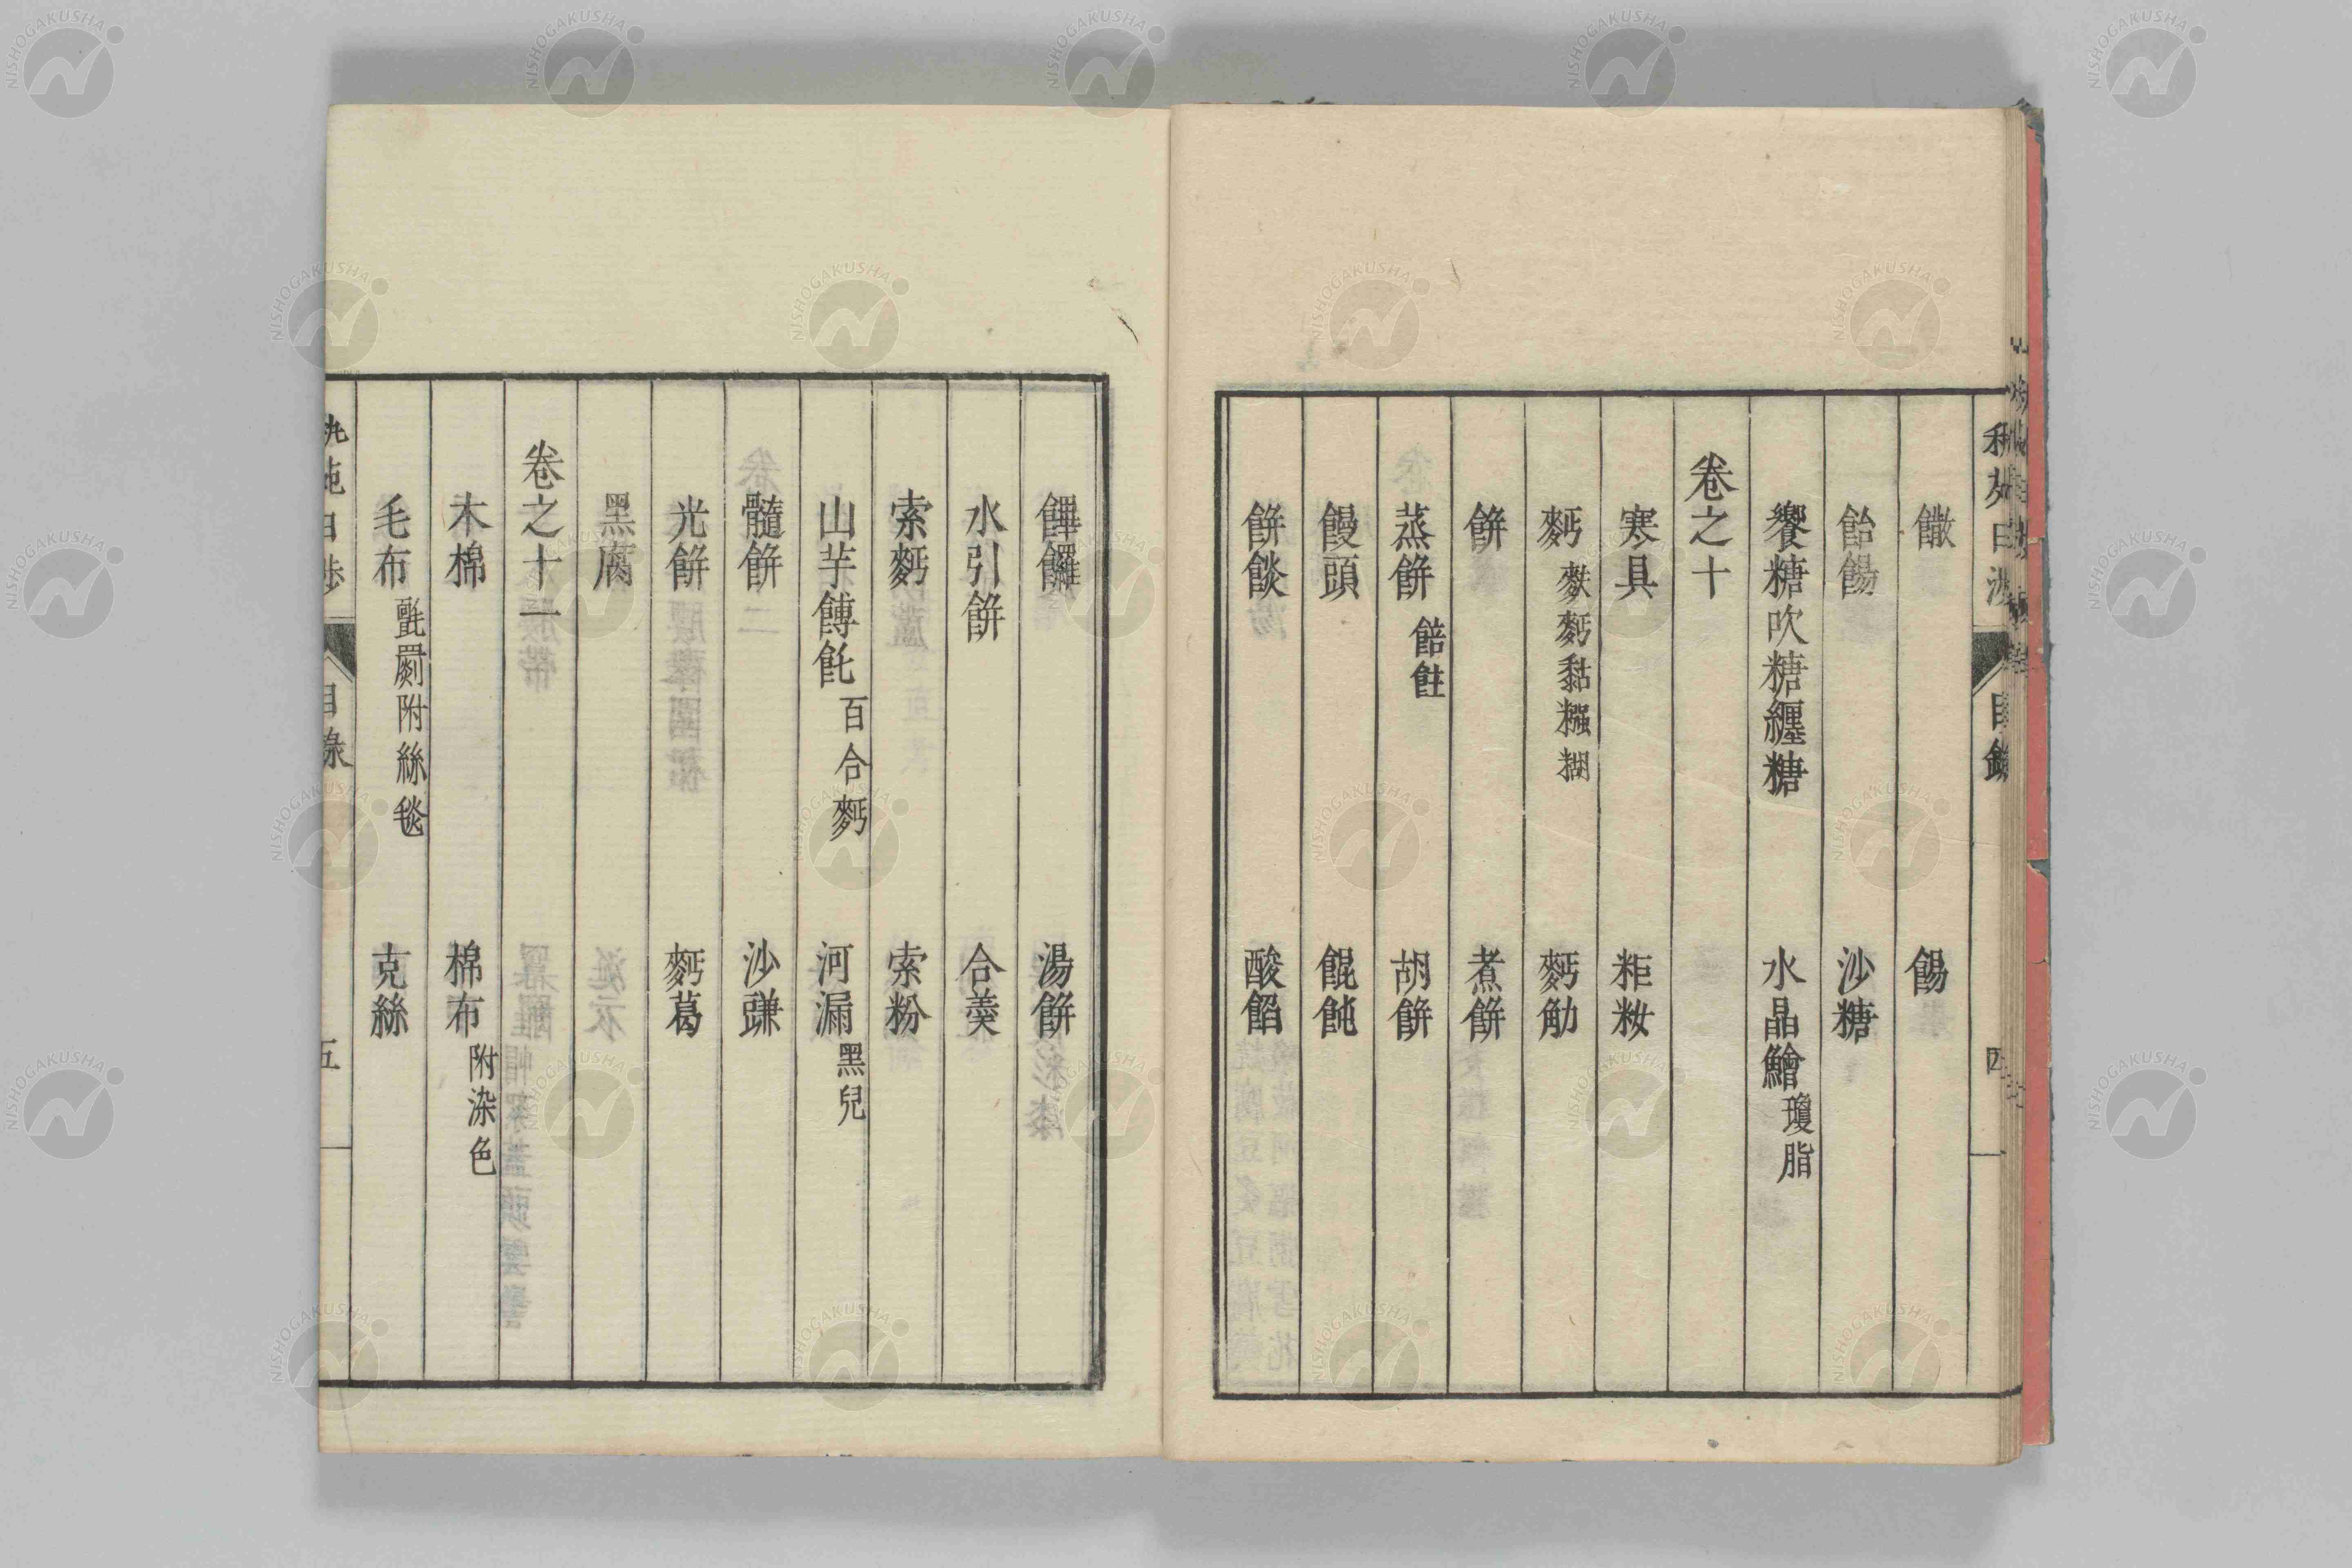 饊　餳
飴餳　沙糖
饗糖吹糖纏糖　水晶鱠瓊脂
卷之十
寒具　粔籹
麪麩麪黏糨糊　麪觔
餅　煮餅
蒸餅餢飳　胡餅
饅頭　餛飩
餅餤　酸餡
目錄
四
饆饠　湯餅
水引餅　合羹
索麪　索粉
山芋餺飥百合麪　河漏黑兒
髓餅　沙䜩
光餅　麪葛
黑腐
卷之十一
木棉　棉布附染色
毛布氈罽附絲毯　克絲
目錄
五
NISHOGAKUSHA